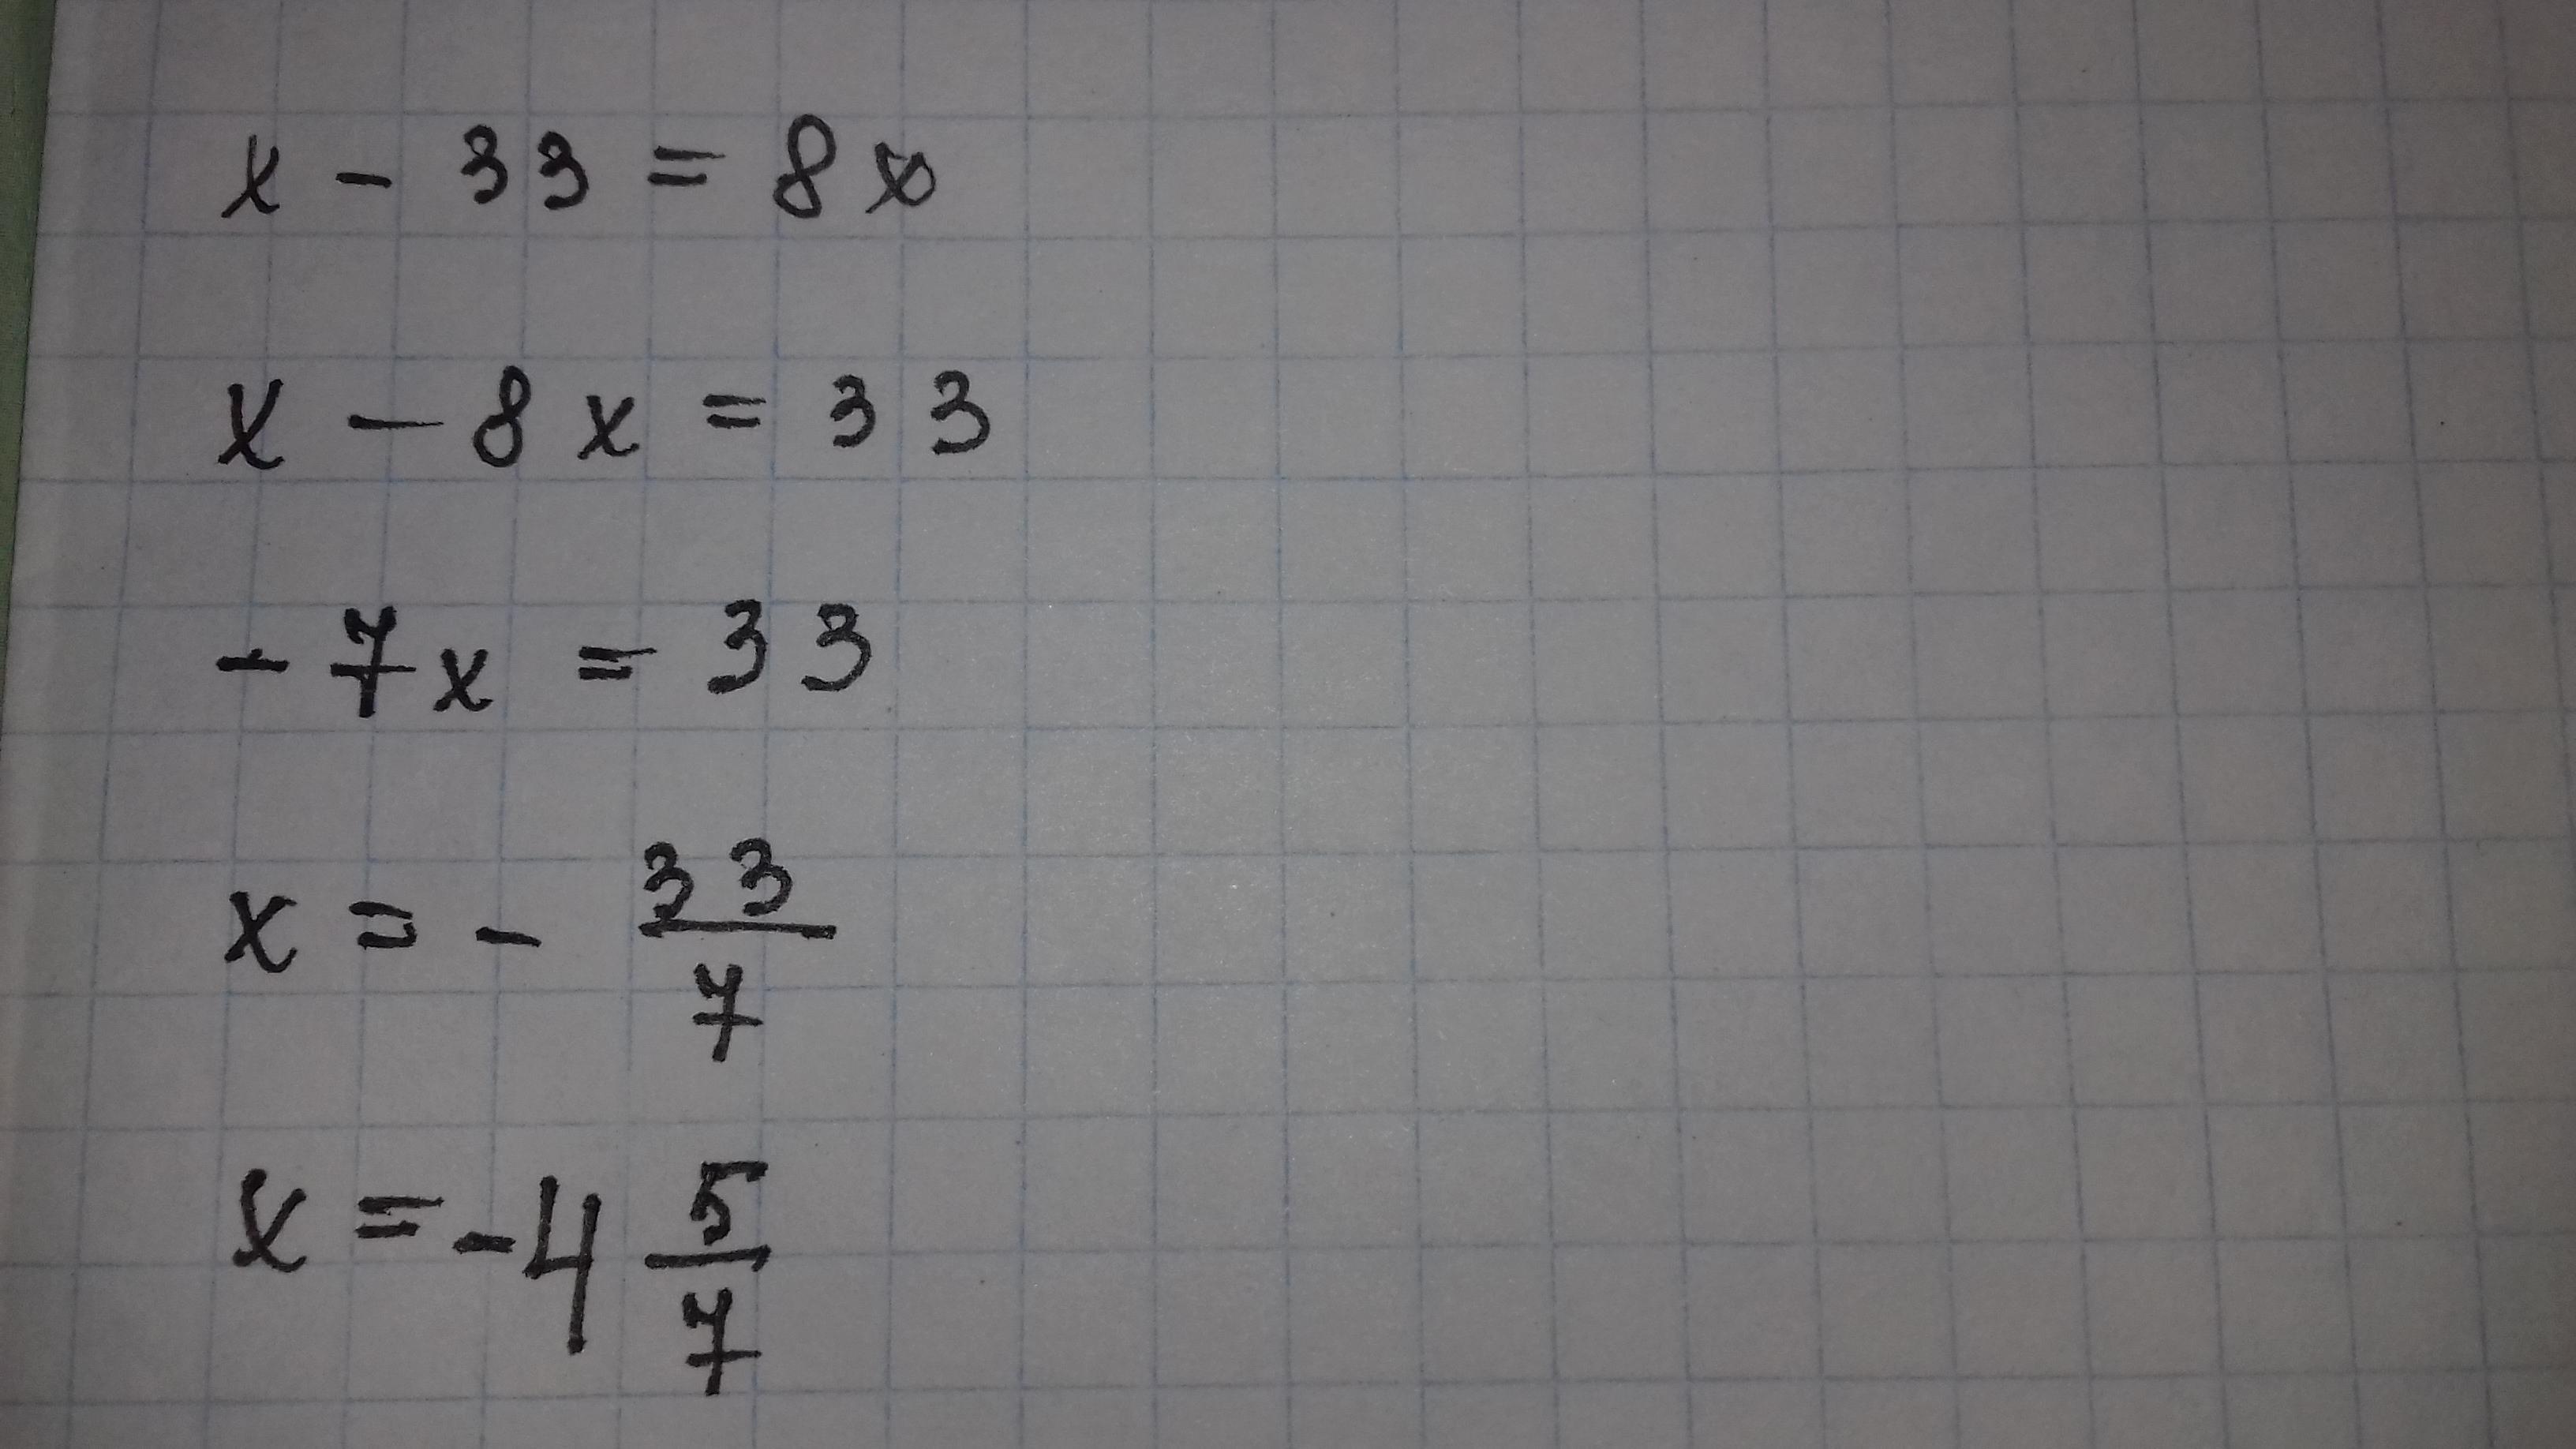 x - 33 = 8x
x - 8x = 33
- 7x = 33
x = - 33/7
x = -4 5/7